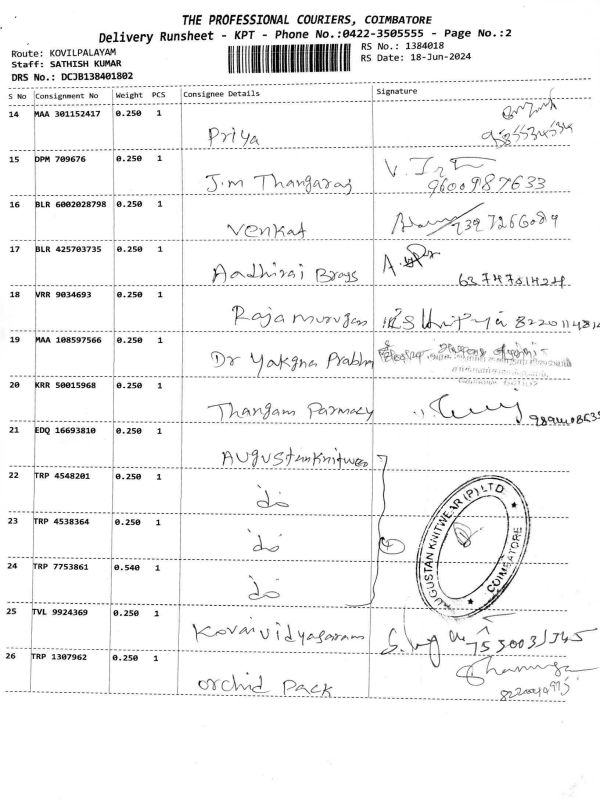 THE PROFESSIONAL COURIERS, COIMBATORE
Delivery Runsheet - KPT - Phone No.:0422-3505555 - Page No.:2
Route: KOVILPALAYAM
Staff: SATHISH KUMAR
DRS No.: DCJB138401802
RS No.: 1384018
RS Date: 18-Jun-2024
S No Consignment No Weight PCS Consignee Details Signature
14 MAA 301152417 0.250 1
Priya
15 DPM 709676 0.250 1
J.m Thangaraj
9600987633
16 BLR 6002028798 0.250 1
Venkat 7397266089
17 BLR 425703735 0.250 1
Aadhirai Broys
18 VRR 9034693 0.250 1
Rajamurugan
19 MAA 108597566 0.250 1
Dr Yakgna Prabhu
20 KRR 50015968 0.250 1
Thangam Parmacy
21 EDQ 16693810 0.250 1
Augustanknitwea
22 TRP 4548201 0.250 1
do
23 TRP 4538364 0.250 1
do
24 TRP 7753861 0.540 1
do
4
AUGUSTAN KNITWEAR (P) LTD.
★ COIMBATORE ★
25 TVL 9924369 0.250 1
Kovaividyasaram
26 TRP 1307962 0.250 1
Orchid Pack